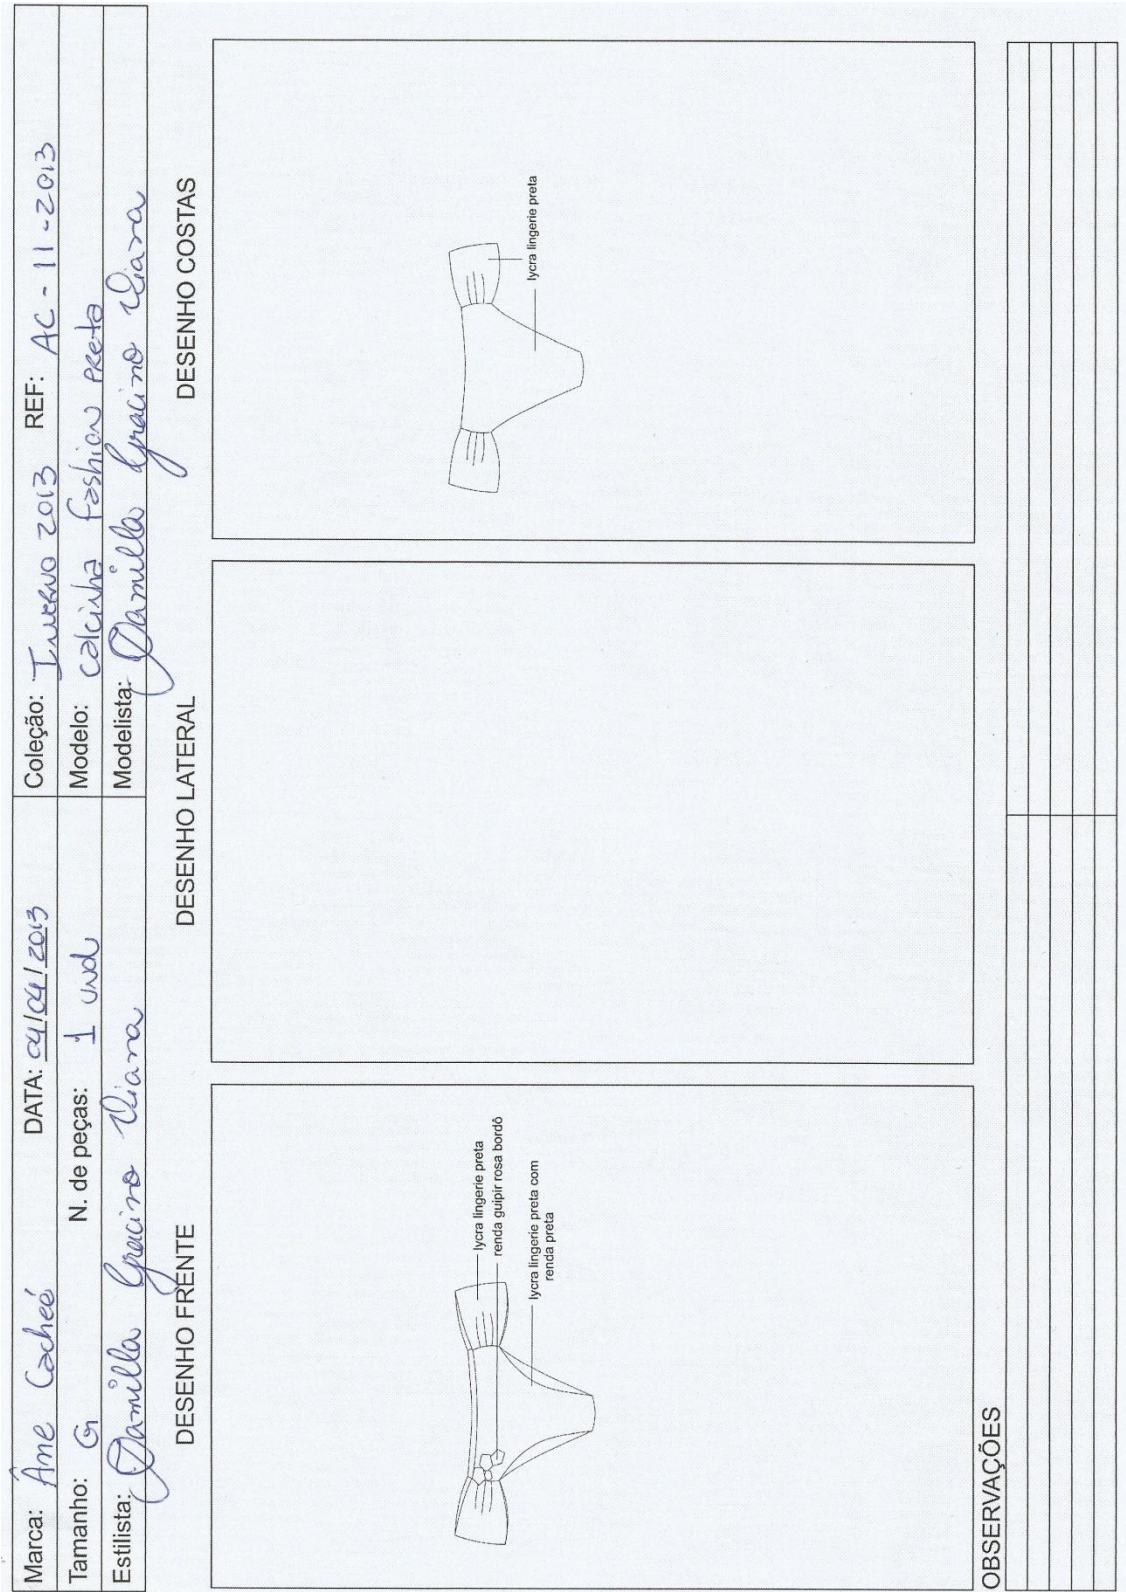 Marca: Âme Cacheé DATA: 04/04/2013 Coleção: Inverno 2013 REF: AC-11-2013
Tamanho: G N. de peças: 1 und Modelo: calcinha fashion preta
Estilista: Damilla Gracino Viana Modelista: Damilla Gracino Viana
DESENHO FRENTE
lycra lingerie preta
renda guipir rosa bordô
lycra lingerie preta com
renda preta
DESENHO LATERAL
DESENHO COSTAS
lycra lingerie preta
OBSERVAÇÕES